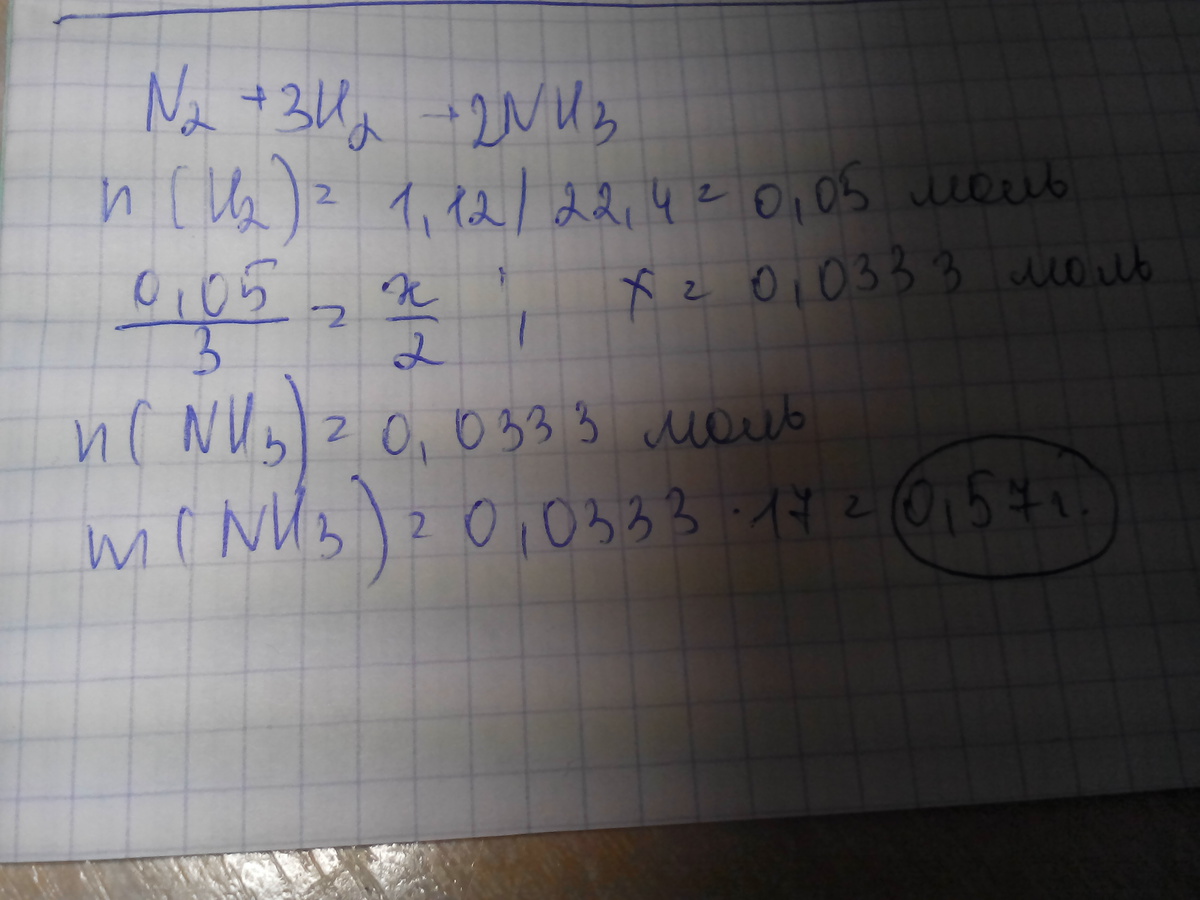 N₂ + 3H₂ → 2NH₃
n(H₂) = 1,12 / 22,4 = 0,05 моль
0,05/3 = x/2 ; x = 0,0333 моль
n(NH₃) = 0,0333 моль
m(NH₃) = 0,0333 · 17 = 0,57 г.